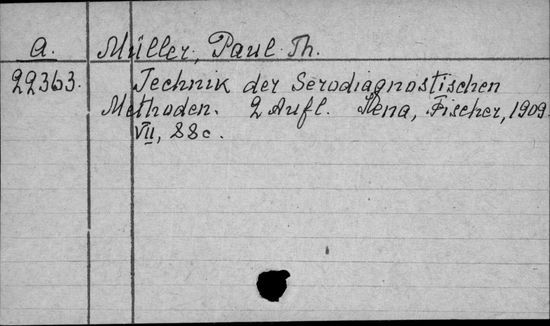 a. Müller, Paul Th.
22363. Technik der Serodiagnostischen
Methoden. 2 Aufl. Jena, Fischer, 1909.
VII, 88c.